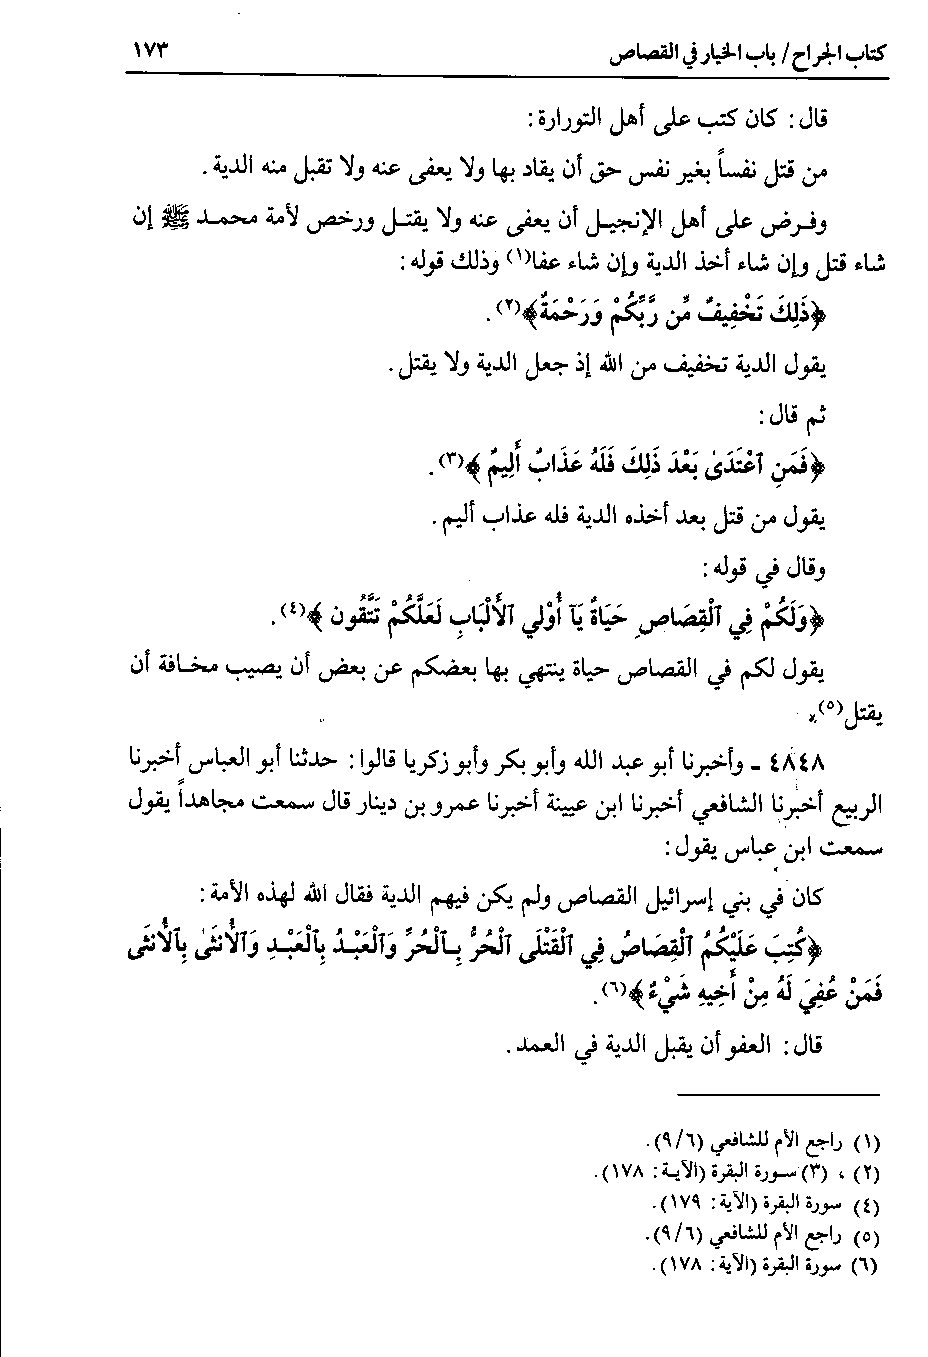 كتاب الجراح / باب الخيار في القصاص ١٧٣
قال : كان كتب على أهل التورارة :
من قتل نفساً بغير نفس حق أن يقاد بها ولا يعفى عنه ولا تقبل منه الدية .
وفرض على أهل الإنجيل أن يعفى عنه ولا يقتل ورخص لأمة محمد ﷺ إن
شاء قتل وإن شاء أخذ الدية وإن شاء عفا(١) وذلك قوله :
﴿ذَلِكَ تَخْفِيفٌ مِّن رَّبِّكُمْ وَرَحْمَةٌ﴾(٢) .
يقول الدية تخفيف من الله إذ جعل الدية ولا يقتل .
ثم قال :
﴿فَمَنِ ٱعْتَدَىٰ بَعْدَ ذَلِكَ فَلَهُ عَذَابٌ أَلِيمٌ ﴾(٣) .
يقول من قتل بعد أخذه الدية فله عذاب أليم .
وقال في قوله :
﴿وَلَكُمْ فِي ٱلْقِصَاصِ حَيَاةٌ يَآ أُوْلي ٱلأَلْبَابِ لَعَلَّكُمْ تَتَّقُون ﴾(٤) .
يقول لكم في القصاص حياة ينتهي بها بعضكم عن بعض أن يصيب مخافة أن
يقتل(٥) .
٤٨٤٨ ـ وأخبرنا أبو عبد الله وأبو بكر وأبو زكريا قالوا : حدثنا أبو العباس أخبرنا
الربيع أخبرنا الشافعي أخبرنا ابن عيينة أخبرنا عمرو بن دينار قال سمعت مجاهداً يقول
سمعت ابن عباس يقول :
كان في بني إسرائيل القصاص ولم يكن فيهم الدية فقال الله لهذه الأمة :
﴿كُتِبَ عَلَيْكُمُ ٱلْقِصَاصُ فِي ٱلْقَتْلَى ٱلْحُرُّ بِٱلْحُرِّ وَٱلْعَبْدُ بِٱلْعَبْدِ وَٱلأُنثَىٰ بِٱلأُنثَى
فَمَنْ عُفِيَ لَهُ مِنْ أَخِيهِ شَيْءٌ﴾(٦) .
قال : العفو أن يقبل الدية في العمد .
(١) راجع الأم للشافعي (٩/٦) .
(٢) ، (٣) سورة البقرة (الآية : ١٧٨) .
(٤) سورة البقرة (الآية : ١٧٩) .
(٥) راجع الأم للشافعي (٩/٦) .
(٦) سورة البقرة (الآية : ١٧٨) .